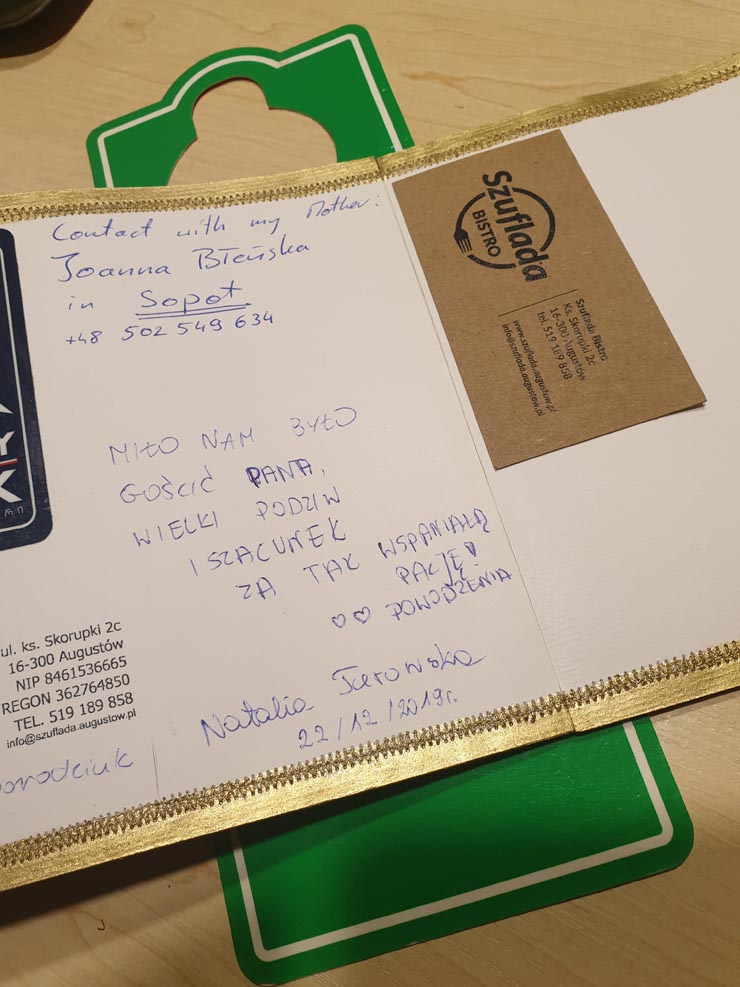 Contact with my Mother:
Joanna Bleńska
in Sopot
+48 502 549 634
MIŁO NAM BYŁO
GOŚCIĆ PANA,
WIELKI PODZIW
I SZACUNEK
ZA TAK WSPANIAŁĄ
PACJĘ
POWODZENIA
Natalia
22/12/2019r.
ul. ks. Skorupki 2c
16-300 Augustów
NIP 8461536665
REGON 362764850
TEL. 519 189 858
info@szuflada.augustow.pl
Szuflada
BISTRO
Szuflada Bistro
Ks. Skorupki 2c
16-300 Augustów
tel. 519 189 858
www.szuflada.augustow.pl
info@szuflada.augustow.pl